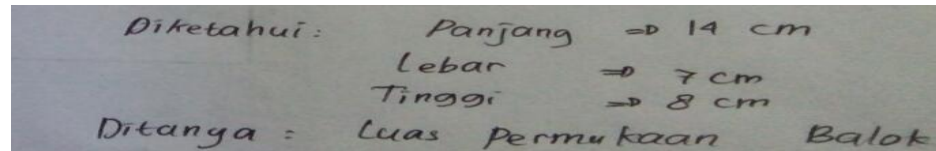 Diketahui: Panjang => 14 cm
Lebar => 7 cm
Tinggi => 8 cm
Ditanya: Luas Permukaan Balok